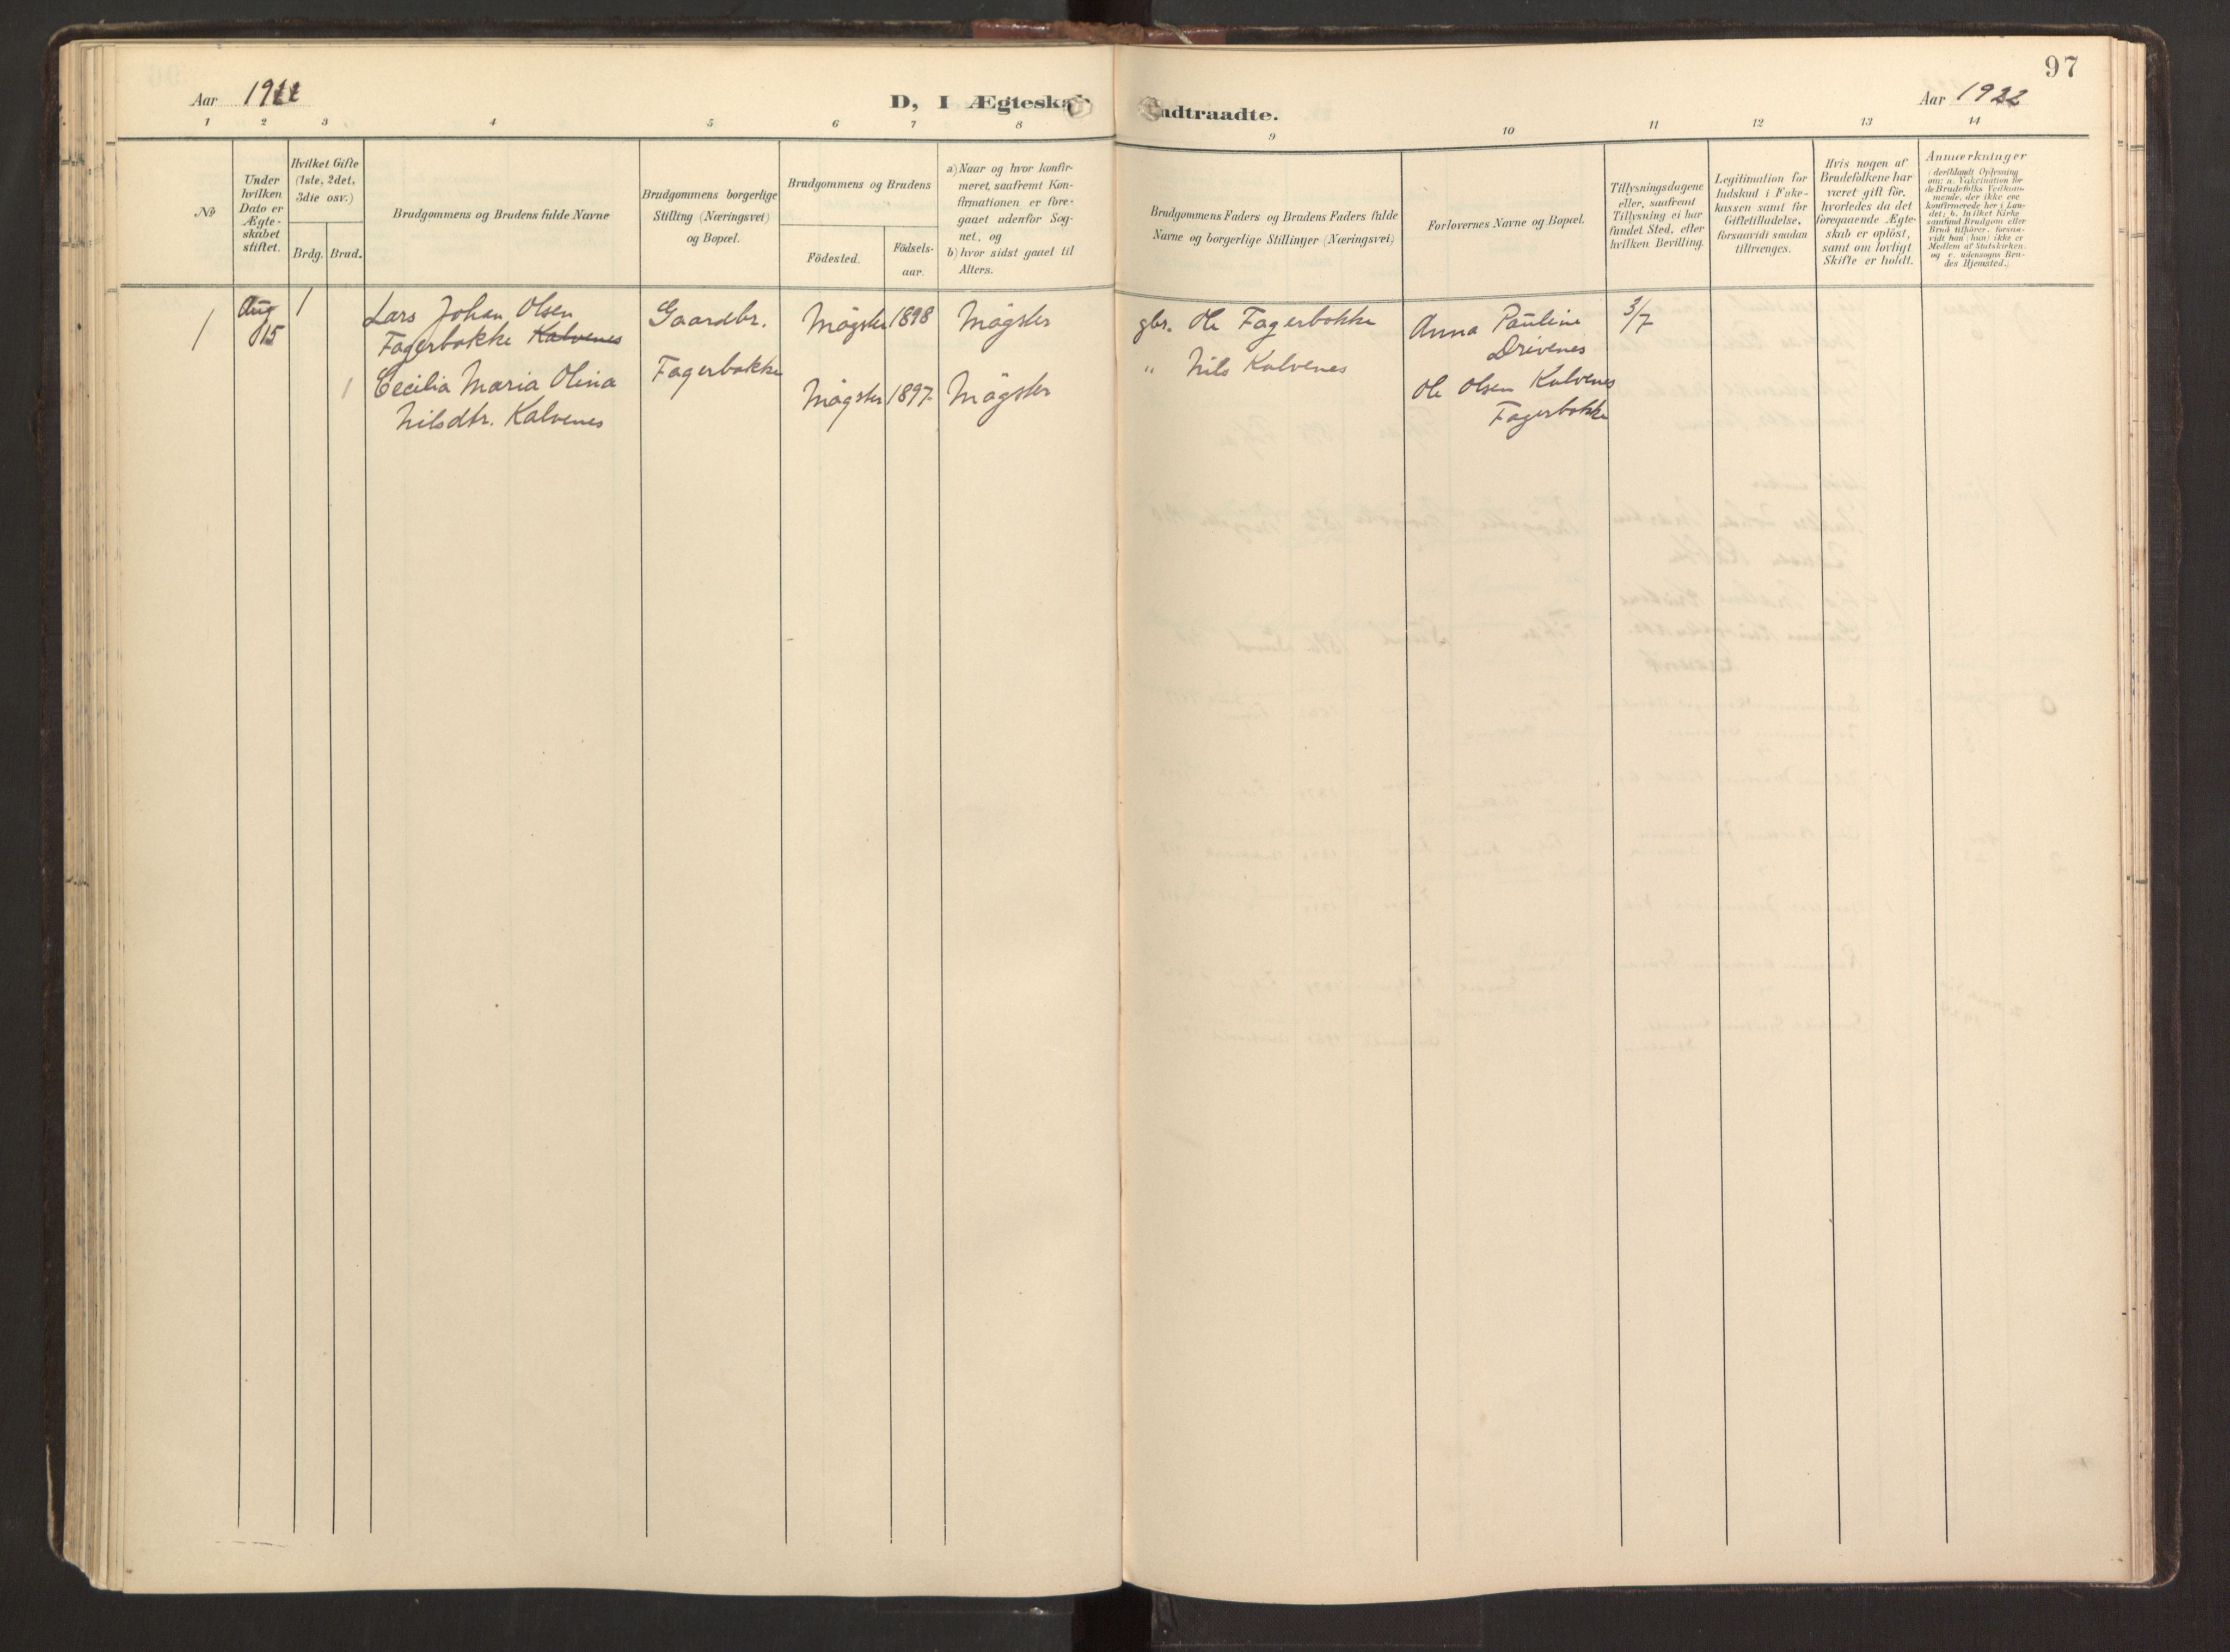 97
Aar 1922
D, I Ægteskab
Indtraadte.
Aar 1922
1 2 3 4 5 6 7 8 9 10 11 12 13 14
No
Under
hvilken
Dato er
Ægte-
skabet
stiftet.
Hvilket Gifte
(1ste, 2det,
3die osv.)
Brdg. Brud.
Brudgommens og Brudens fulde Navne
Brudgommens borgerlige
Stilling (Næringsvei)
og Bopæl.
Brudgommens og Brudens
Födested.
Födsels-
aar.
a) Naar og hvor konfir-
meret, saafremt Kon-
firmationen er fore-
gaaet udenfor Sog-
net, og
b) hvor sidst gaaet til
Alters.
Brudgommens Faders og Brudens Faders fulde
Navne og borgerlige Stillinger (Næringsvei)
Forlovernes Navne og Bopæl.
Tillysningsdagene
eller, saafremt
Tillysning ei har
fundet Sted, efter
hvilken Bevilling.
Legitimation for
Indskud i Enke-
kassen samt for
Giftetilladelse,
forsaavidt saadan
tiltrænges.
Hvis nogen af
Brudefolkene har
været gift før,
hvorledes da det
foregaaende Ægte-
skab er oplöst,
samt om lovligt
Skifte er holdt.
Anmærkninger
(deriblandt Oplysning
om: a. Vakcination for
de Brudefolks Vedkom-
mende, der ikke ere
konfirmerede her i Lan-
det; b. hvilket Kirke-
samfund Brudgom eller
Brud tilhører, forsaa-
vidt han (hun) ikke er
Medlem af Statskirken.
og c. udensogns Bru-
des Hjemsted.)
1
Aug
15
1
Lars Johan Olsen
Fagerbakke Kalvenes
Gaardbr.
Fagerbakke
Mögster 1898 Mögster
gbr. Ole Fagerbakke
Anna Pauline
Drivenes
3/7
1
Cecilia Maria Olina
Nilsdtr. Kalvenes
Mögster 1897 Mögster
" Nils Kalvenes
Ole Olsen Kalvenes
Fagerbakke